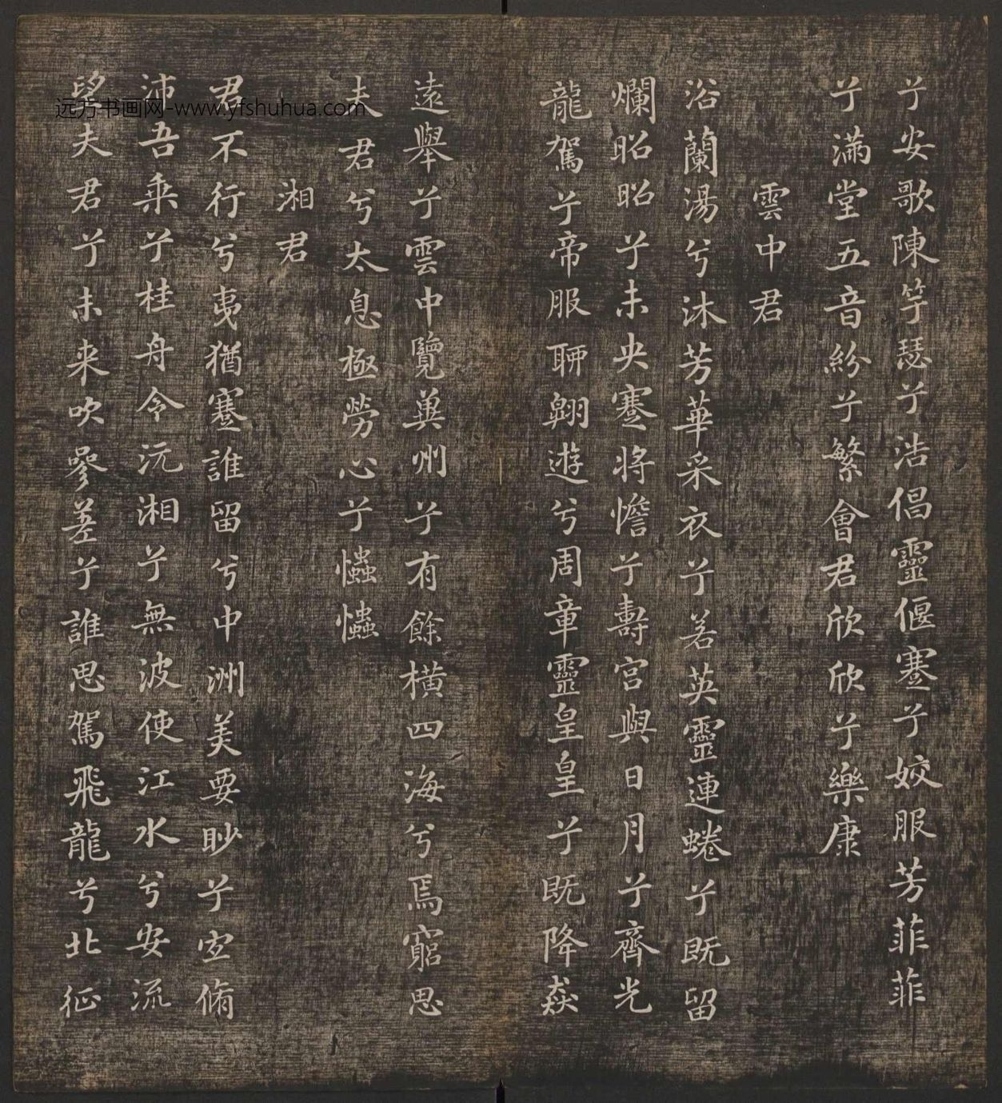 兮安歌陳竽瑟兮浩倡靈偃蹇兮姣服芳菲菲
兮滿堂五音紛兮繁會君欣欣兮樂康
雲中君
浴蘭湯兮沐芳華采衣兮若英靈連蜷兮既留
爛昭昭兮未央蹇將憺兮壽宮與日月兮齊光
龍駕兮帝服聊翱遊兮周章靈皇皇兮既降猋
遠舉兮雲中覽兾州兮有餘橫四海兮焉窮思
夫君兮太息極勞心兮㦀㦀
湘君
君不行兮夷猶蹇誰留兮中洲美要眇兮宜脩
沛吾乘兮桂舟令沅湘兮無波使江水兮安流
望夫君兮未来吹參差兮誰思駕飛龍兮北征
远方书画网-www.yfshuhua.com